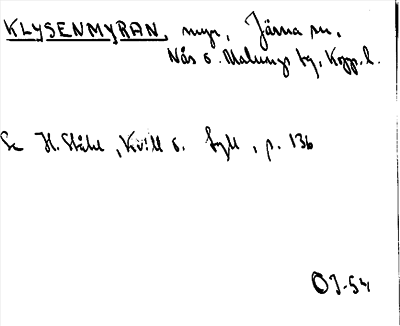 KLYSENMYRAN, myr, Järna sn,
Nås o. Malungs tg, Kopp. l.
Se H. Ståhl, Kvill o. Syll, p. 136
OJ-54